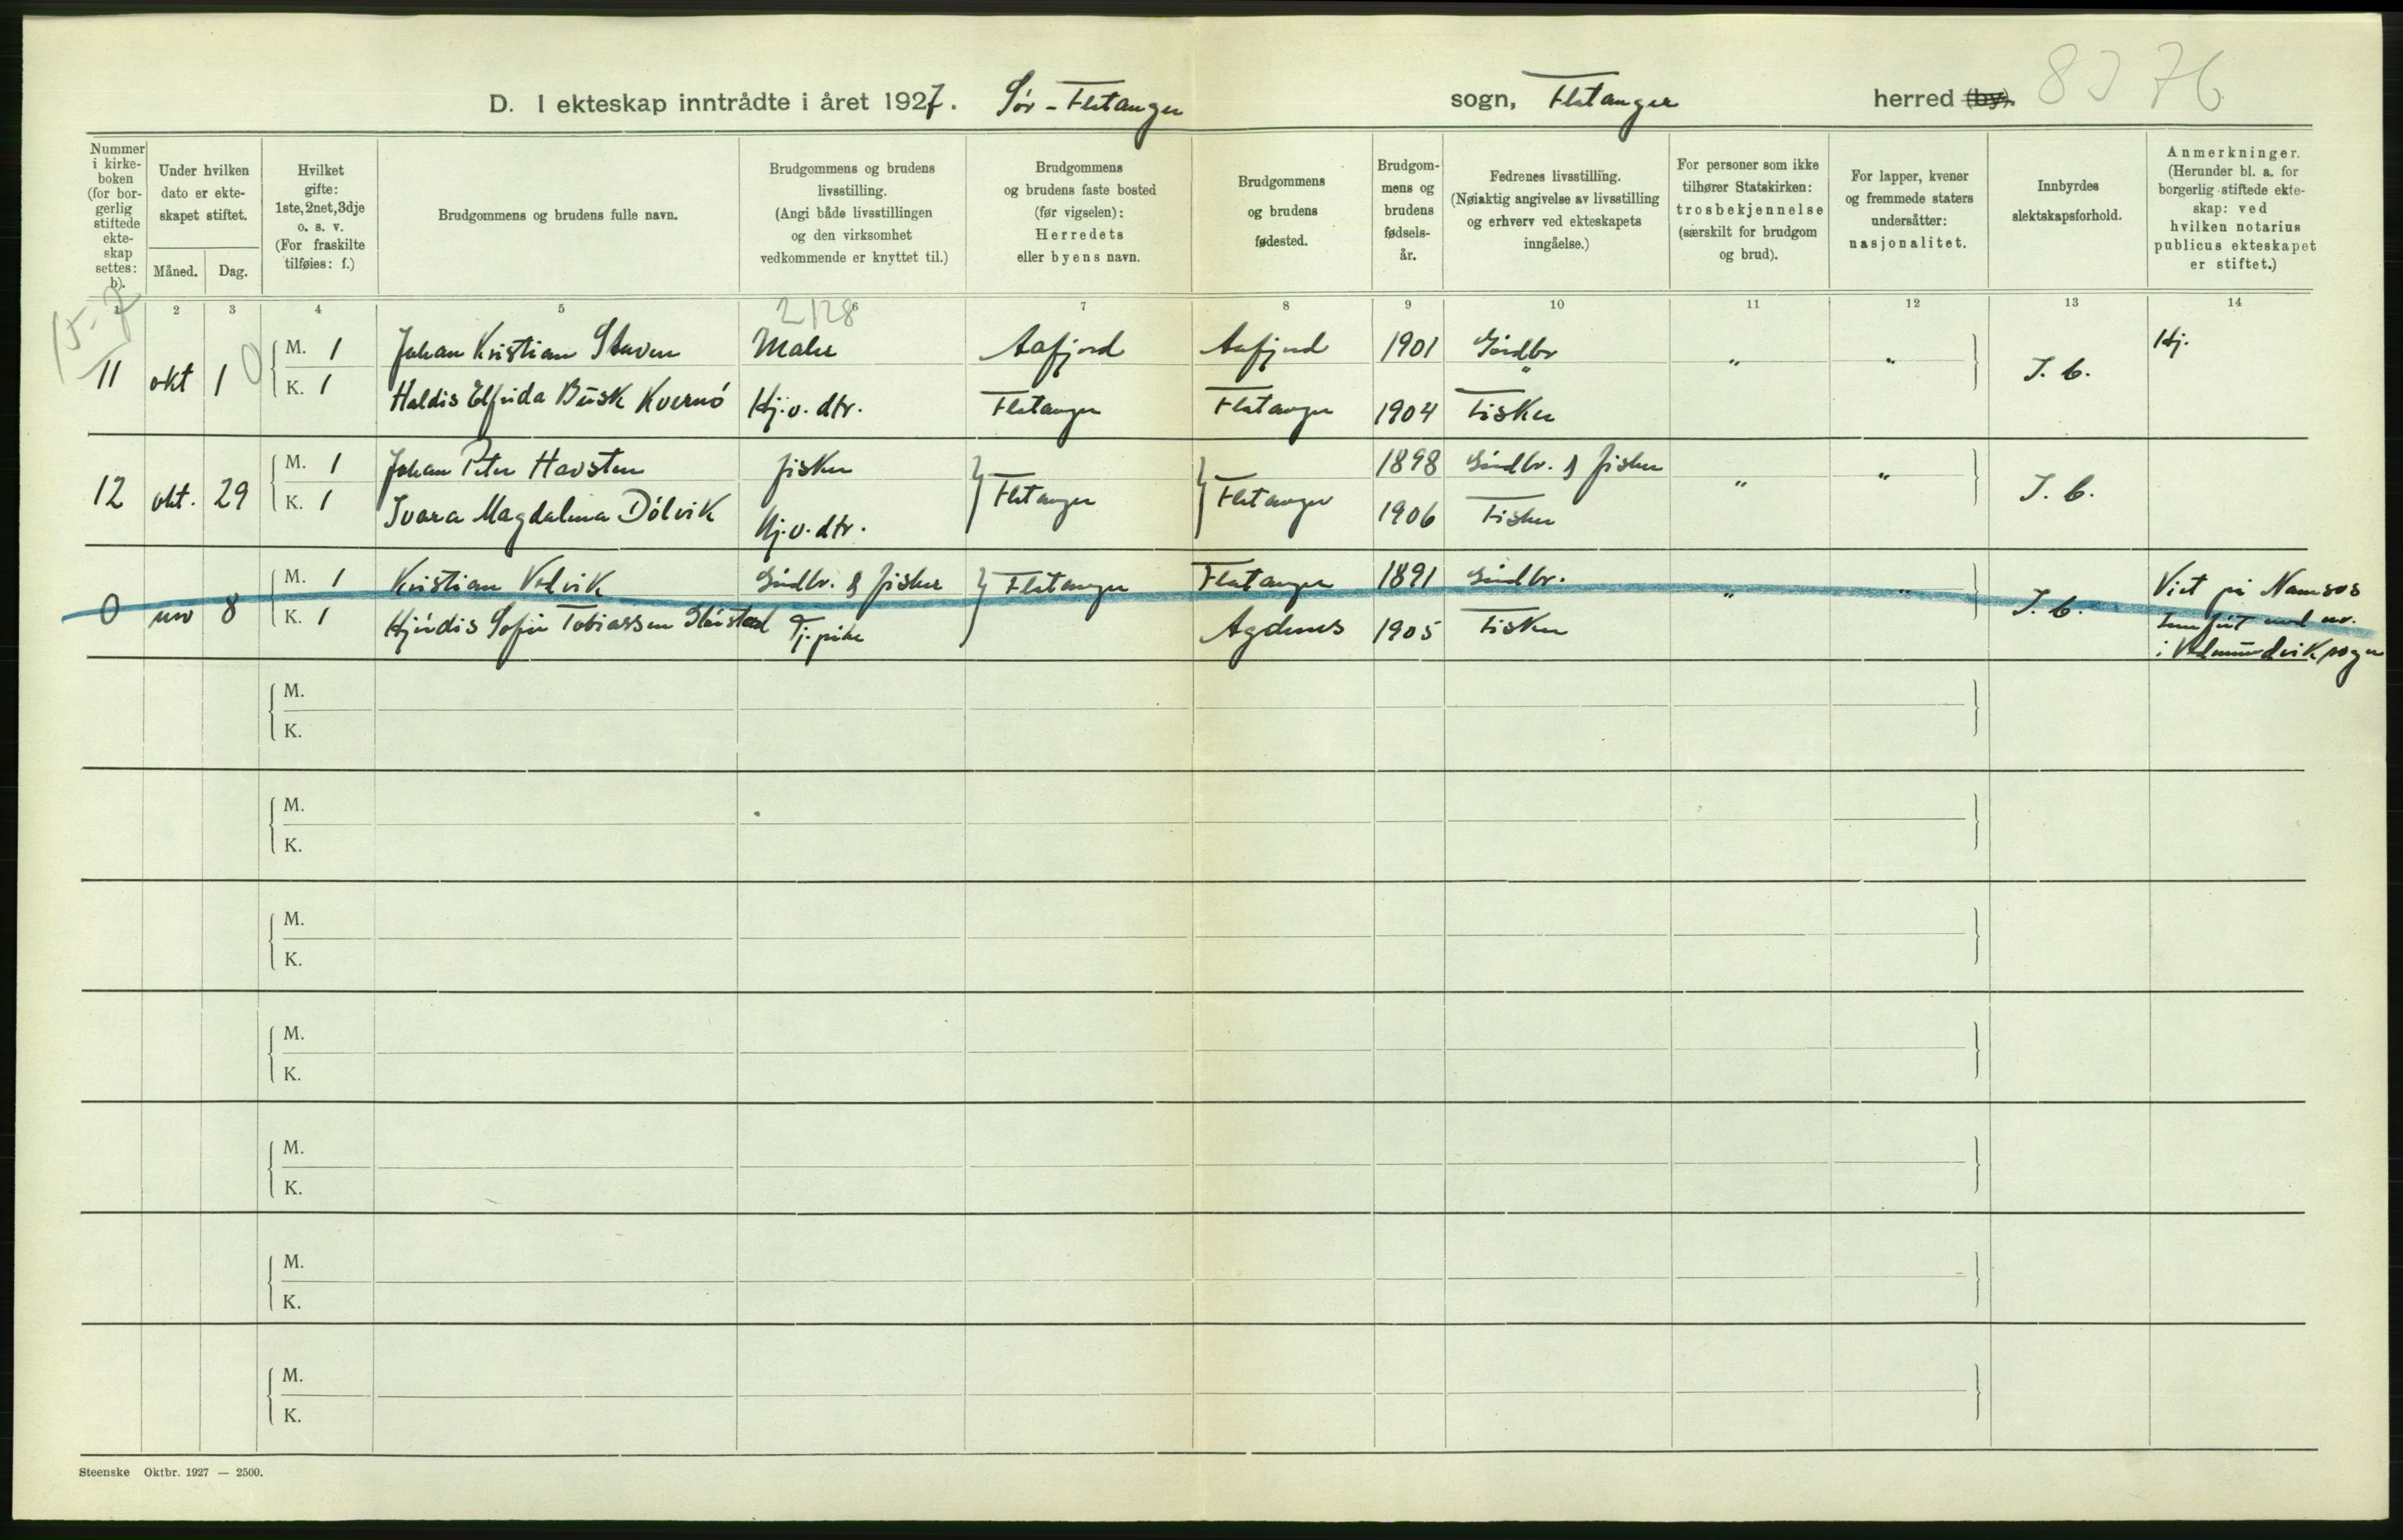 8376
D. I ekteskap inntrådte i året 1927. Sør-Flatanger sogn, Flatanger herred (by).
Nummer i kirkeboken (for borgerlig stiftede ekteskap settes: b).
Under hvilken dato er ekteskapet stiftet.
Måned. Dag.
Hvilket gifte: 1ste, 2net, 3dje o. s. v. (For fraskilte tilføies: f.)
Brudgommens og brudens fulle navn.
Brudgommens og brudens livsstilling. (Angi både livsstillingen og den virksomhet vedkommende er knyttet til.)
Brudgommens og brudens faste bosted (før vigselen): Herredets eller byens navn.
Brudgommens og brudens fødested.
Brudgommens og brudens fødselsår.
Fedrenes livsstilling. (Nøiaktig angivelse av livsstilling og erhverv ved ekteskapets inngåelse.)
For personer som ikke tilhører Statskirken: trosbekjennelse (særskilt for brudgom og brud).
For lapper, kvener og fremmede staters undersåtter: nasjonalitet.
Innbyrdes slektskapsforhold.
Anmerkninger. (Herunder bl. a. for borgerlig stiftede ekteskap: ved hvilken notarius publicus ekteskapet er stiftet.)
1 2 3 4 5 6 7 8 9 10 11 12 13 14
15-7
2128
11 okt 1 0 M. 1 Johan Kristian Staven Maler Aafjord Aafjord 1901 Gårdbr " " I. b. Kj.
K. 1 Haldis Elfrida Busk Kvernö Hj.v. dtr. Flatanger Flatanger 1904 Fisker
12 okt. 29 M. 1 Johan Peter Havsten fisker Flatanger Flatanger 1898 Gårdbr. & fisker " " I. b.
K. 1 Ivara Magdalena Dölvik Hj.v. dtr. 1906 Fisker
0 nov 8 M. 1 Kristian Vedvik Gårdbr. & fisker Flatanger Flatanger 1891 Gårdbr. " " I. b. Viet på Namsos
K. 1 Hjördis Sofie Tobiassen Tj. pike Agdenes 1905 Fisker
M.
K.
M.
K.
M.
K.
M.
K.
M.
K.
M.
K.
M.
K.
Steenske Oktbr. 1927 — 2500.